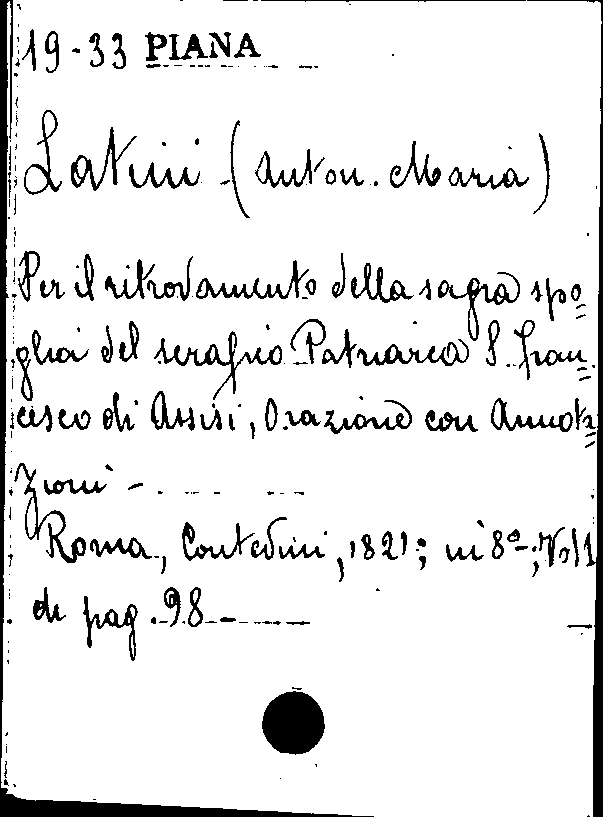 19-33 PIANA
Latini (Anton. Maria)
Per il ritrovamento della sagra spo=
glia del serafico Patriarca S. Fran=
cesco di Assisi, Orazione con Annota=
zioni -
Roma, Contedini, 1821; in 8º; Vol 1
di pag. 98 -